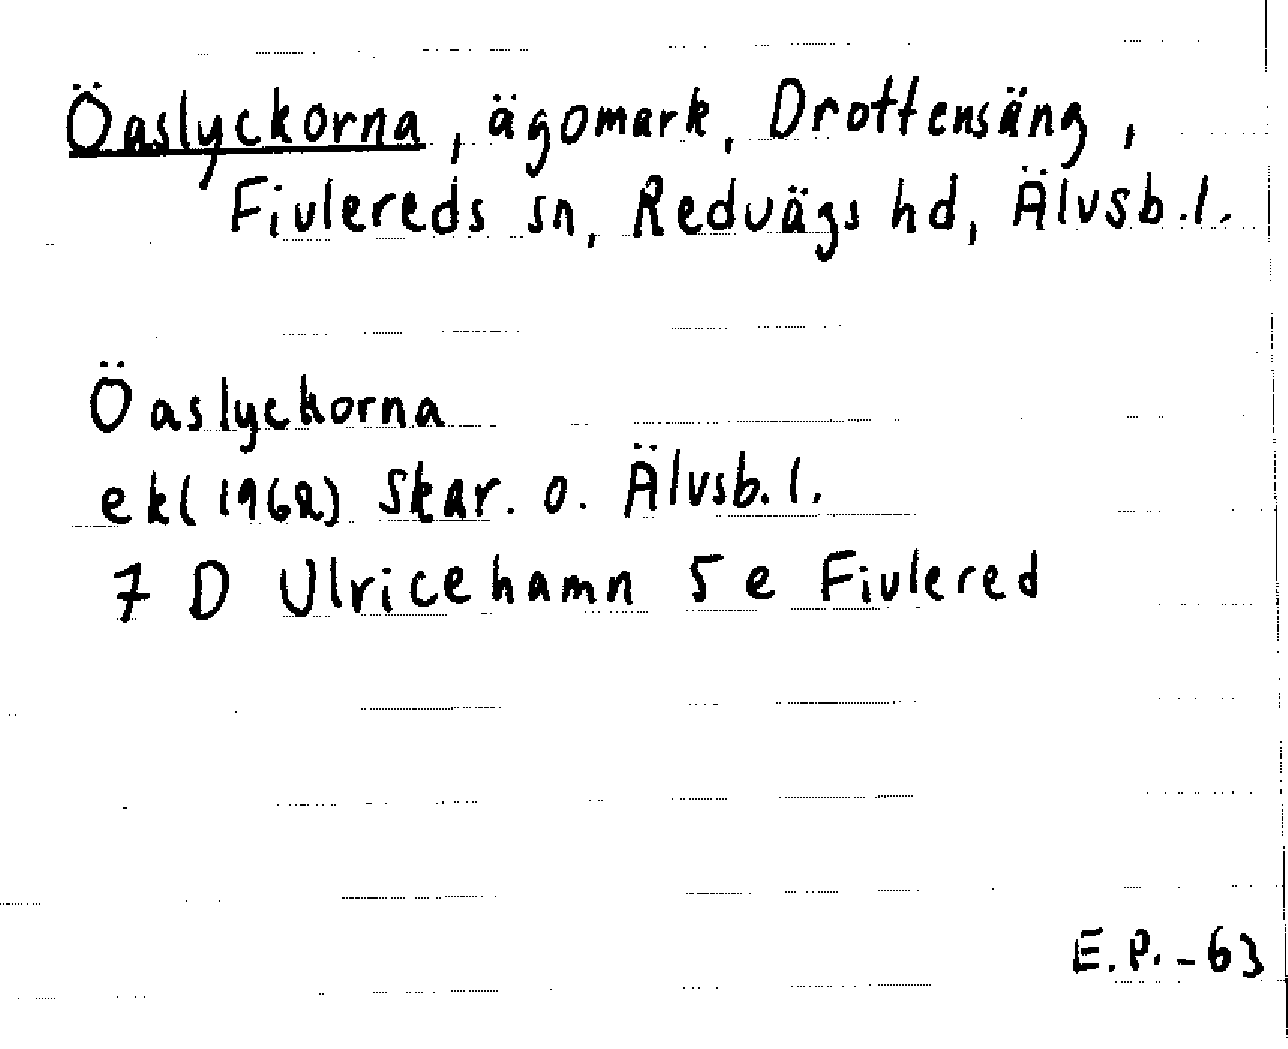 Öaslyckorna, ägomark, Drottensäng,
Fivlereds sn, Redvägs hd, Älvsb.l.
Öaslyckorna
ekl(1962) Skar. o. Älvsb.l.
7 D Ulricehamn 5 e Fivlered
E.P.-63